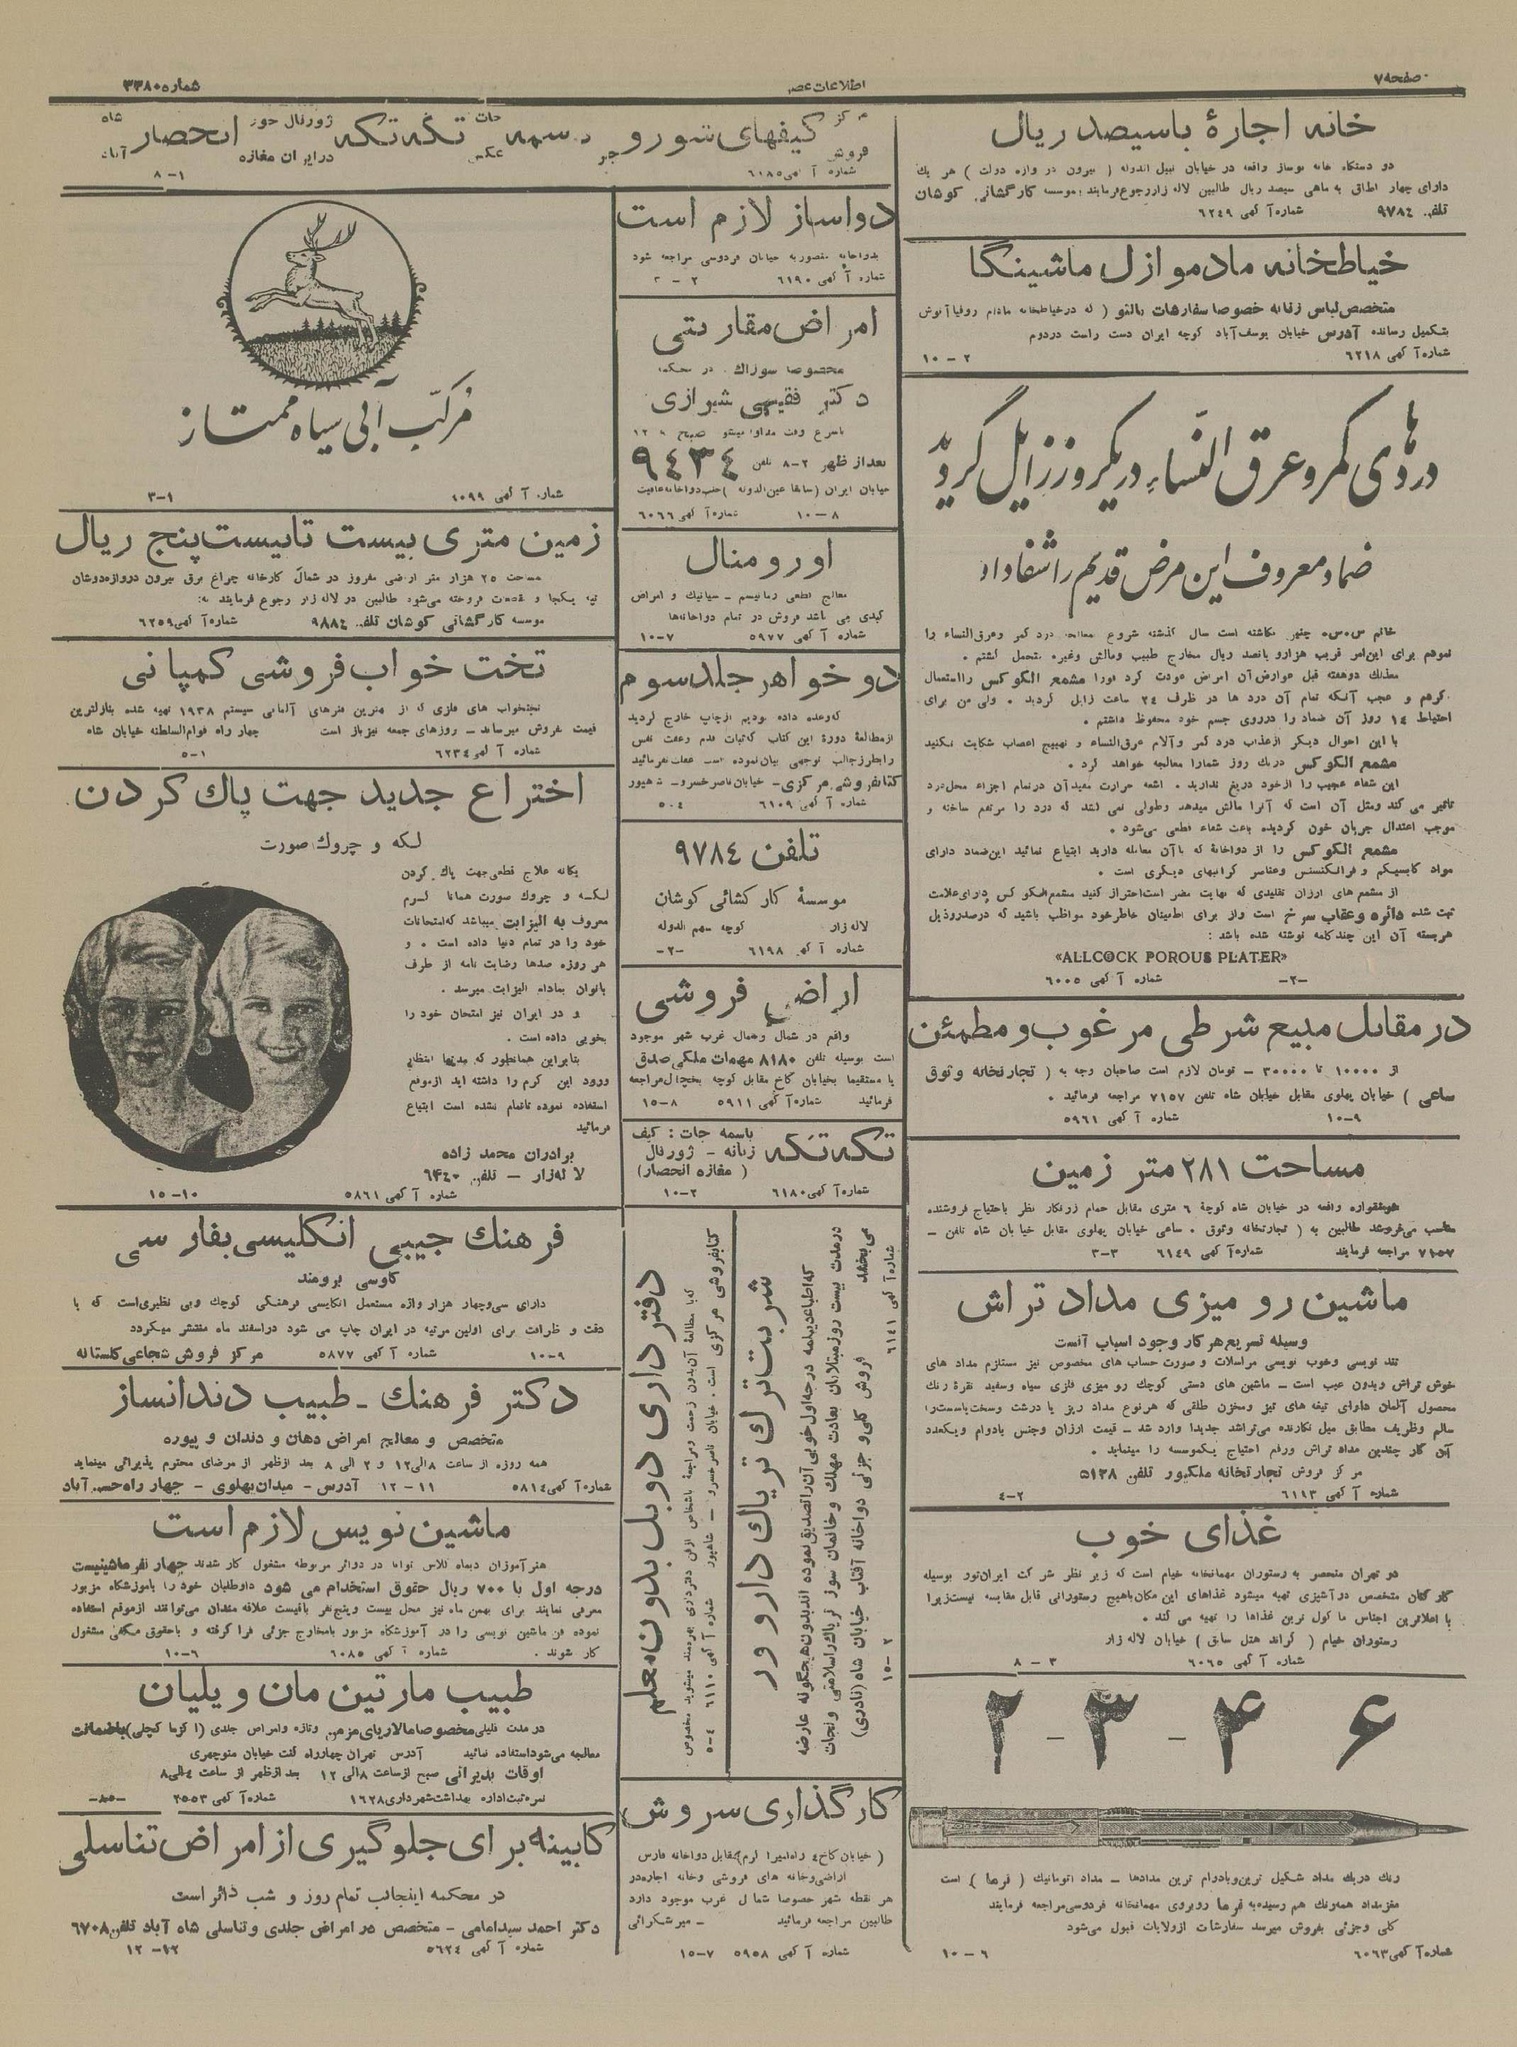 صفحه ۷
اطلاعات عصر
شماره ۳۳۸۰
خانه اجارهٔ باسیصد ریال
دو دستگاه خانه نوساز واقعه در خیابان نبیل الدوله ( بیرون دروازه دولت ) هر یك
دارای چهار اطاق به ماهی سیصد ریال طالبین لاله زار رجوع فرمایند بموسسه كارگشائی كوشان
تلفن ۹۷۸٤ شماره آ گهی ٦۲٤۹
خیاطخانه مادموازل ماشینگا
متخصص لباس زنانه خصوصا سفارشات پالتو ( كه در خیاطخانه مادام روفیا آنوش
بتكمیل رسانده آدرس خیابان یوسف آباد كوچه ایران دست راست دردوم
شماره آ گهی ٦۲۱۸ ۲ – ۱۰
دردهای کمر و عرق النساء در یکروز زایل گردید
ضماد معروف این مرض قدیم را شفا داد
خانم س.س. چنین نگاشته است سال گذشته شروع بمعالجه درد كمر وعرق النساء را
نمودم برای این امر قریب هزارو پانصد ریال مخارج طبیب ومالش وغیره متحمل گشتم .
معذلك دوهفته قبل عوارض آن امراض عودت كرد فورا مشمع الكوكس را استعمال
كردم و عجب آنكه تمام آن درد ها در ظرف ۲٤ ساعت زایل گردید . ولی من برای
احتیاط ۱٤ روز آن ضماد را درروی جسم خود محفوظ داشتم .
با این احوال دیگر از عذاب درد كمر وآلام عرق النساء و تهییج اعصاب شكایت نكنید
مشمع الكوكس دریك روز شمارا معالجه خواهد كرد .
این شفاء عجیب را از خود دریغ ندارید . اشعه حرارت مفید آن در تمام اجزاء محل درد
تاثیر می كند ومثل آن است كه آنرا مالش میدهد وطولی نمی كشد كه درد را مرتفع ساخته و
موجب اعتدال جریان خون گردیده باعث شفاء قطعی می شود .
مشمع الكوكس را از دواخانهٔ كه با آن معامله دارید ابتیاع نمائید این ضماد دارای
مواد كاپسیكم و فرانكنسنس وعناصر گرانبهای دیگری است .
از مشمع های ارزان تقلیدی كه نهایت مضر است احتراز كنید مشمع الكو كس دارای علامت
ثبت شده دائره وعقاب سرخ است واز برای اطمینان خاطر خود مواظب باشید كه در صدر وذیل
هربسته آن این چند كلمه نوشته شده باشد :
«ALLCOCK POROUS PLATER»
شماره آ گهی ٦۰۰٥ –۲–
در مقابل مبیع شرطی مرغوب و مطمئن
از ۱۰۰۰۰ تا ۳۰۰۰۰ – تومان لازم است صاحبان وجه به ( تجارتخانه وثوق
ساعی ) خیابان پهلوی مقابل خیابان شاه تلفن ۷۱٥۷ مراجعه فرمائید .
شماره آ گهی ٥۹٦۱ ۹–۱۰
مساحت ۲۸۱ متر زمین
واقعه در خیابان شاه كوچهٔ ٦ متری مقابل حمام زرنگار نظر باحتیاج فروشنده
مناسب می فروشد طالبین به ( تجارتخانه وثوق . ساعی خیابان پهلوی مقابل خیا بان شاه تلفن –
۷۱٥۷ مراجعه فرمایند شماره آ گهی ٦۱٤۹ ۳–۳
ماشین رو میزی مداد تراش
وسیله تسریع هركار وجود اسباب آنست
تند نویسی وخوب نویسی مراسلات و صورت حساب های مخصوص نیز مستلزم مداد های
خوش تراش وبدون عیب است – ماشین های دستی كوچك رو میزی فلزی سیاه وسفید نقرهٔ رنگ
محصول آلمان دارای تیغه های تیز ومخزن طلقی كه هر نوع مداد ریز یا درشت وسخت باسست را
سالم وظریف مطابق میل نگارنده می تراشد جدیدا وارد شد – قیمت ارزان وجنس بادوام ویكعدد
آن كار چندین مداد تراش ورفع احتیاج یكموسسه را مینماید .
مر كز فروش تجارتخانه ملكپور تلفن ٥۱۳۸
شماره آ گهی ٦۱۱۳ ۲–٤
غذای خوب
در تهران منحصر به رستوران مهمانخانه خیام است كه زیر نظر شر كت ایران تور بوسیله
كار كنان متخصص در آشپزی تهیه میشود غذاهای این مكان باهیچ رستورانی قابل مقایسه نیست زیرا
با اعلاترین اجناس ما كول ترین غذاها را تهیه می كند .
رستوران خیام ( گراند هتل سابق ) خیابان لاله زار
شماره آ گهی ٦۰٦٥ ۳ – ۸
۶ ۴ – ۳ – ۲
رنگ دریك مداد شكیل ترین وبادوام ترین مدادها – مداد اتوماتیك ( فرما ) است
مغز مداد همه رنگ هم رسیده به فرما روبروی مهمانخانه فردوسی مراجعه فرمایند
كلی وجزئی بفروش میرسد سفارشات از ولایات قبول می شود
شماره آ گهی ٦۰٦۳ ٦ – ۱۰
مركز فروش كیفهای شورو
شماره آ گهی ٦۱۸٥
تكه تكه
ژورنال
در ایران مغازه انحصار شاه آباد
۱–۸
دواساز لازم است
بدواخانه منصوریه خیابان فردوسی مراجعه شود
شماره آ گهی ٦۱۹۰
امراض مقاربتی
مخصوصا سوزاك در محكمه
دكتر فقیهی شیرازی
بعداز ظهر ۲–۸ تلفن ۹٤۳٤
خیابان ایران (سابقا عین الدوله ) جنب دواخانه عافیت
شماره آ گهی ٦۰٦٦ ۸ – ۱۰
اورومنال
معالج قطعی رماتیسم – سیاتیك و امراض
كبدی می باشد فروش در تمام دواخانه ها
شماره آ گهی ٥۹۷۷ ۷–۱۰
دو خواهر جلد سوم
كه وعده داده بودیم از چاپ خارج گردید
از مطالعهٔ دورهٔ این كتاب كه ثبات قدم وعفت نفس
را بطرز جالب توجهی بیان نموده است غفلت نفرمائید
كتابفروشی مركزی – خیابان ناصر خسرو – شاهپور
شماره آ گهی ٦۱۰۹ ٤–٥
تلفن ۹۷۸٤
موسسهٔ كار گشائی كوشان
لاله زار كوچه مهم الدوله
شماره آ گهی ٦۱۹۸ –۲–
اراضی فروشی
واقع در شمال وشمال غرب شهر موجود
است بوسیله تلفن ۸۱۸۰ مهمات ملكی صدق
یا مستقیما بخیابان كاخ مقابل كوچه یخچال مراجعه
فرمائید شماره آ گهی ٥۹۱۱ ۸–۱٥
تكه تكه
باسمه جات : كیف
زنانه – ژورنال
( مغازه انحصار )
شماره آ گهی ٦۱۸۰ ۲–۱۰
دفتر داری دوبل بدون معلم
كه با مطالعهٔ آن بدون زحمت ومراجعهٔ باشخاص از فن دفتر داری بهره مند میشوید مخصوص
كتابفروشی مركزی است . خیابان ناصر خسرو – شاهپور شماره آ گهی ٦۱۱۰ ٤–٥
شربت ترك تریاك دارو ور
كه اطباء دیپلمه درجه اول خوبی آن را تصدیق نموده اند بدون هیچگونه عارضه
در مدت بیست روز مبتلایان بعادت مهلك وخانمان سوز تریاك را سلامتی ونجات
می بخشد فروش كلی و جزئی دواخانه آفتاب خیابان شاه (نادری)
شماره آ گهی ٦۱٤۱ ۲–۱٥
كارگذاری سروش
( خیابان كاخ ٤ راه امیرا كرم) مقابل دواخانه فارس
اراضی وخانه های فروشی وخانه اجاره در
هر نقطه شهر خصوصا شمال غرب موجود دارد
طالبین مراجعه فرمائید – میرشكرائی
شماره آ گهی ٥۹٥۸ ۷–۱٥
مرکب آبی سیاه ممتاز
شماره آ گهی ۱۰۹۹ ۱–۳
زمین متری بیست تابیست پنج ریال
مساحت ۲٥ هزار متر اراضی مفروز در شمال كارخانه چراغ برق بیرون دروازه دوشان
تپه یكجا و قسمت فروخته می شود طالبین در لاله زار رجوع فرمایند به:
موسسه كارگشائی كوشان تلفن ۹۸۸٤ شماره آ گهی ٦۲٥۹
تخت خواب فروشی كمپانی
تختخواب های فلزی كه از بهترین فنرهای آلمانی سیستم ۱۹۳۸ تهیه شده بنازلترین
قیمت بفروش میرساند – روزهای جمعه نیز باز است چهار راه قوام السلطنه خیابان شاه
شماره آ گهی ٦۲۳٤ ۱–٥
اختراع جدید جهت پاك كردن
لكه و چروك صورت
یگانه علاج قطعی جهت پاك كردن
لكه و چروك صورت همانا كرم
معروف به الیزابت میباشد كه امتحانات
خود را در تمام دنیا داده است . و
هر روزه صدها رضایت نامه از طرف
بانوان بمادام الیزابت میرسد .
و در ایران نیز امتحان خود را
بخوبی داده است .
بنابراین همانطور كه مدتها انتظار
ورود این كرم را داشته اید از موقع
استفاده نموده تاتمام نشده است ابتیاع
فرمائید
برادران محمد زاده
لاله زار – تلفن ٦٤٤۰
شماره آ گهی ٥۸٦۱ ۱۰–۱٥
فرهنك جیبی انگلیسی بفارسی
كاوسی برومند
دارای سی وچهار هزار واژه مستعمل انگلیسی فرهنگی كوچك وبی نظیری است كه با
دقت و ظرافت برای اولین مرتبه در ایران چاپ می شود در اسفند ماه منتشر میگردد
مركز فروش شجاعی گلستانه شماره آ گهی ٥۸۷۷ ۹–۱۰
دكتر فرهنك – طبیب دندانساز
متخصص و معالج امراض دهان و دندان و پیوره
همه روزه از ساعت ۸ الی ۱۲ و ۲ الی ۸ بعد از ظهر از مرضای محترم پذیرائی مینماید
شماره آ گهی ٥۸۱٤ ۱۱ – ۱۲ آدرس – میدان پهلوی – چهار راه حسن آباد
ماشین نویس لازم است
هنر آموزان دیماه كلاس توانا در دوائر مربوطه مشغول كار شدند چهار نفر ماشینیست
درجه اول با ۷۰۰ ریال حقوق استخدام می شود داوطلبان خود را بآموزشگاه مزبور
معرفی نمایند برای بهمن ماه نیز محل بیست وپنج نفر باقیست علاقه مندان می توانند از موقع استفاده
نموده فن ماشین نویسی را در آموزشگاه مزبور بامخارج جزئی فرا گرفته و باحقوق مكفی مشغول
كار شوند . شماره آ گهی ٦۰۸٥ ٦–۱۰
طبیب مارتین مان ویلیان
در مدت قلیلی مخصوصا مالاریای مزمن وتازه وامراض جلدی (ا كزما كچلی) باضمانت
معالجه می شود استفاده نمائید آدرس تهران چهارراه كنت خیابان منوچهری
اوقات پذیرائی صبح از ساعت ۸ الی ۱۲ بعد از ظهر از ساعت ٤ الی ۸
نمره ثبت اداره بهداشت شهرداری ۱٦۲۸ شماره آ گهی ۲٥٥۳ –۸٥–
كابینه برای جلوگیری از امراض تناسلی
در محكمه اینجانب تمام روز و شب دائر است
دكتر احمد سید امامی – متخصص در امراض جلدی وتناسلی شاه آباد تلفن ٦۷۰۸
شماره آ گهی ٥٦۲٤ ۱۲– ۱۲